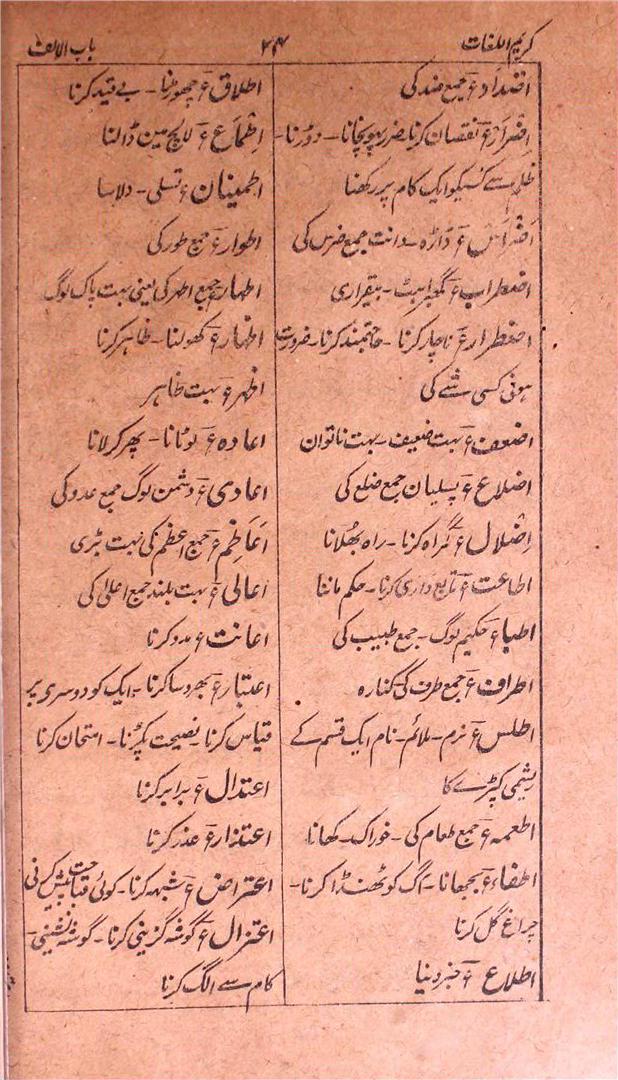 کریم اللغات
۲۴
باب الالف
اضداد ءَ جمع ضد کی
اِضرار ءَ نقصان کرنا۔ ضرر پہونچانا۔ دوڑنا۔
ظلم سے کسیکو ایک کام پر رکھنا
اَضراس ءَ داڑہ۔ دانت جمع ضرس کی
اضطراب ءَ گھبراہٹ۔ بیقراری
اضطرار ءَ ناچار کرنا۔ حاجتمند کرنا۔ ضرورت
ہونی کسی شے کی
اضعف ءَ بہت ضعیف۔ بہت ناتوان
اضلاع ءَ پسلیان جمع ضلع کی
اِضلال ءَ گمراہ کرنا۔ راہ بھُلانا
اطاعت ءَ تابعداری کرنا۔ حکم ماننا
اطبا ءَ حکیم لوگ۔ جمع طبیب کی
اطراف ءَ جمع طرف کی کنارہ
اطلس ءَ نرم۔ ملائم۔ نام ایک قسم کے
ریشمی کپڑے کا
اطعمہ ءَ جمع طعام کی۔ خوراک۔ کھانا
اطفاء ءَ بجھانا۔ آگ کو ٹھنڈا کرنا۔
چراغ گل کرنا
اطلاع ءَ خبر دینا
اطلاق ءَ چھوڑنا۔ بے قید کرنا
اِطماع ءَ لالچ مین ڈالنا
اطمینان ءَ تسلی۔ دلاسا
اطوار ءَ جمع طور کی
اطہار ءَ جمع اطہر کی یعنی بہت پاک لوگ
اظہار ءَ کھولنا۔ ظاہر کرنا
اظہر ءَ بہت ظاہر
اعادہ ءَ لوٹانا۔ پھر کر لانا
اعادی ءَ دشمن لوگ جمع عدو کی
اَعاظم ءَ جمع اعظم کی بہت بڑی
اعالی ءَ بہت بلند جمع اعلی کی
اعانت ءَ مدد کرنا
اعتبار ءَ بھروسا کرنا۔ ایک کو دوسری پر
قیاس کرنا۔ نصیحت پکڑنا۔ امتحان کرنا
اعتدال ءَ برابر کرنا
اعتذار ءَ عذر کرنا
اعتراض ءَ شبہہ کرنا۔ کوئی قباحت پیش کرنی
اعتزال ءَ گوشہ گزینی کرنا۔ گوشہ نشینی۔
کام سے الگ کرنا